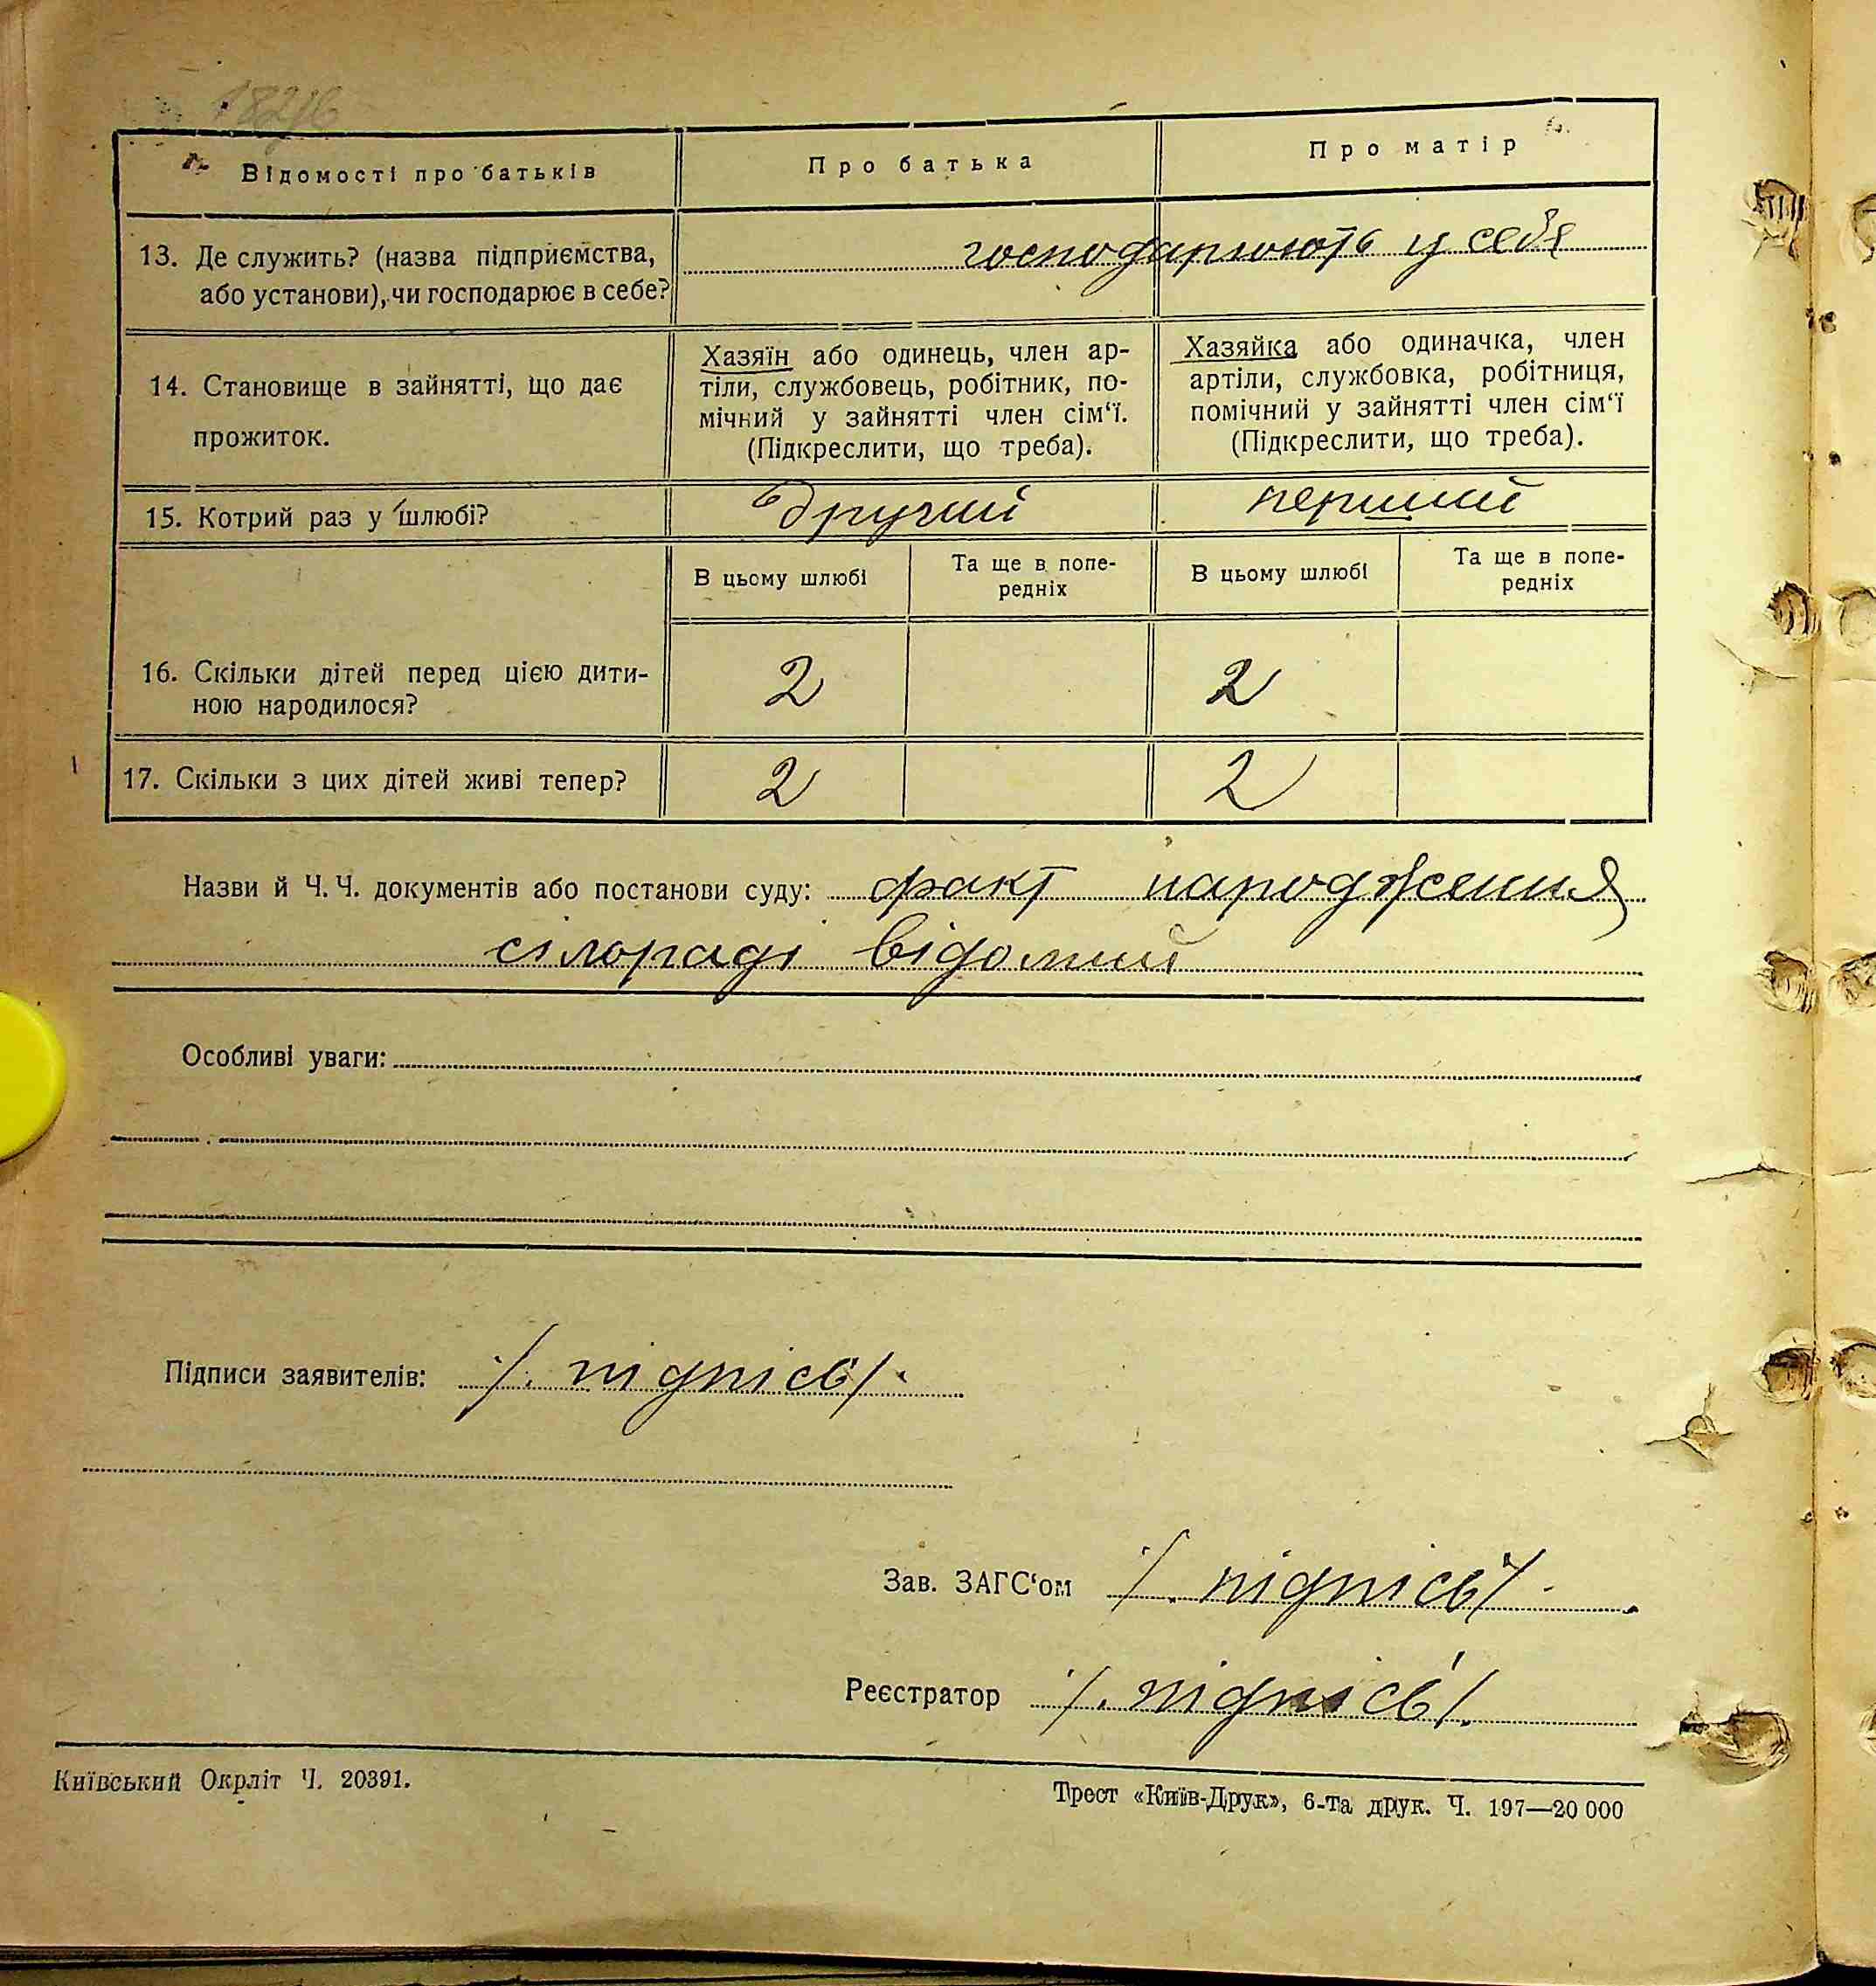 Відомості про батьків
Про батька
Про матір
13. Де служить? (назва підприємства,
або установи), чи господарює в себе?
господарюють у себе
14. Становище в зайнятті, що дає
прожиток.
Хазяїн або одинець, член ар-
тіли, службовець, робітник, по-
мічний у зайнятті член сім‘ї.
(Підкреслити, що треба).
Хазяйка або одиначка, член
артіли, службовка, робітниця,
помічний у зайнятті член сім‘ї
(Підкреслити, що треба).
15. Котрий раз у шлюбі?
другий
перший
В цьому шлюбі
Та ще в попе-
редніх
В цьому шлюбі
Та ще в попе-
редніх
16. Скільки дітей перед цією дити-
ною народилося?
2
2
17. Скільки з цих дітей живі тепер?
2
2
Назви й Ч. Ч. документів або постанови суду: факт народження
сілораді відомий
Особливі уваги:
Підписи заявителів: /. підпісь/.
Зав. ЗАГС‘ом /. підпісь/.
Реєстратор /. підпісь/.
Київський Окрліт Ч. 20391.
Трест «Київ-Друк», 6-та друк. Ч. 197—20 000